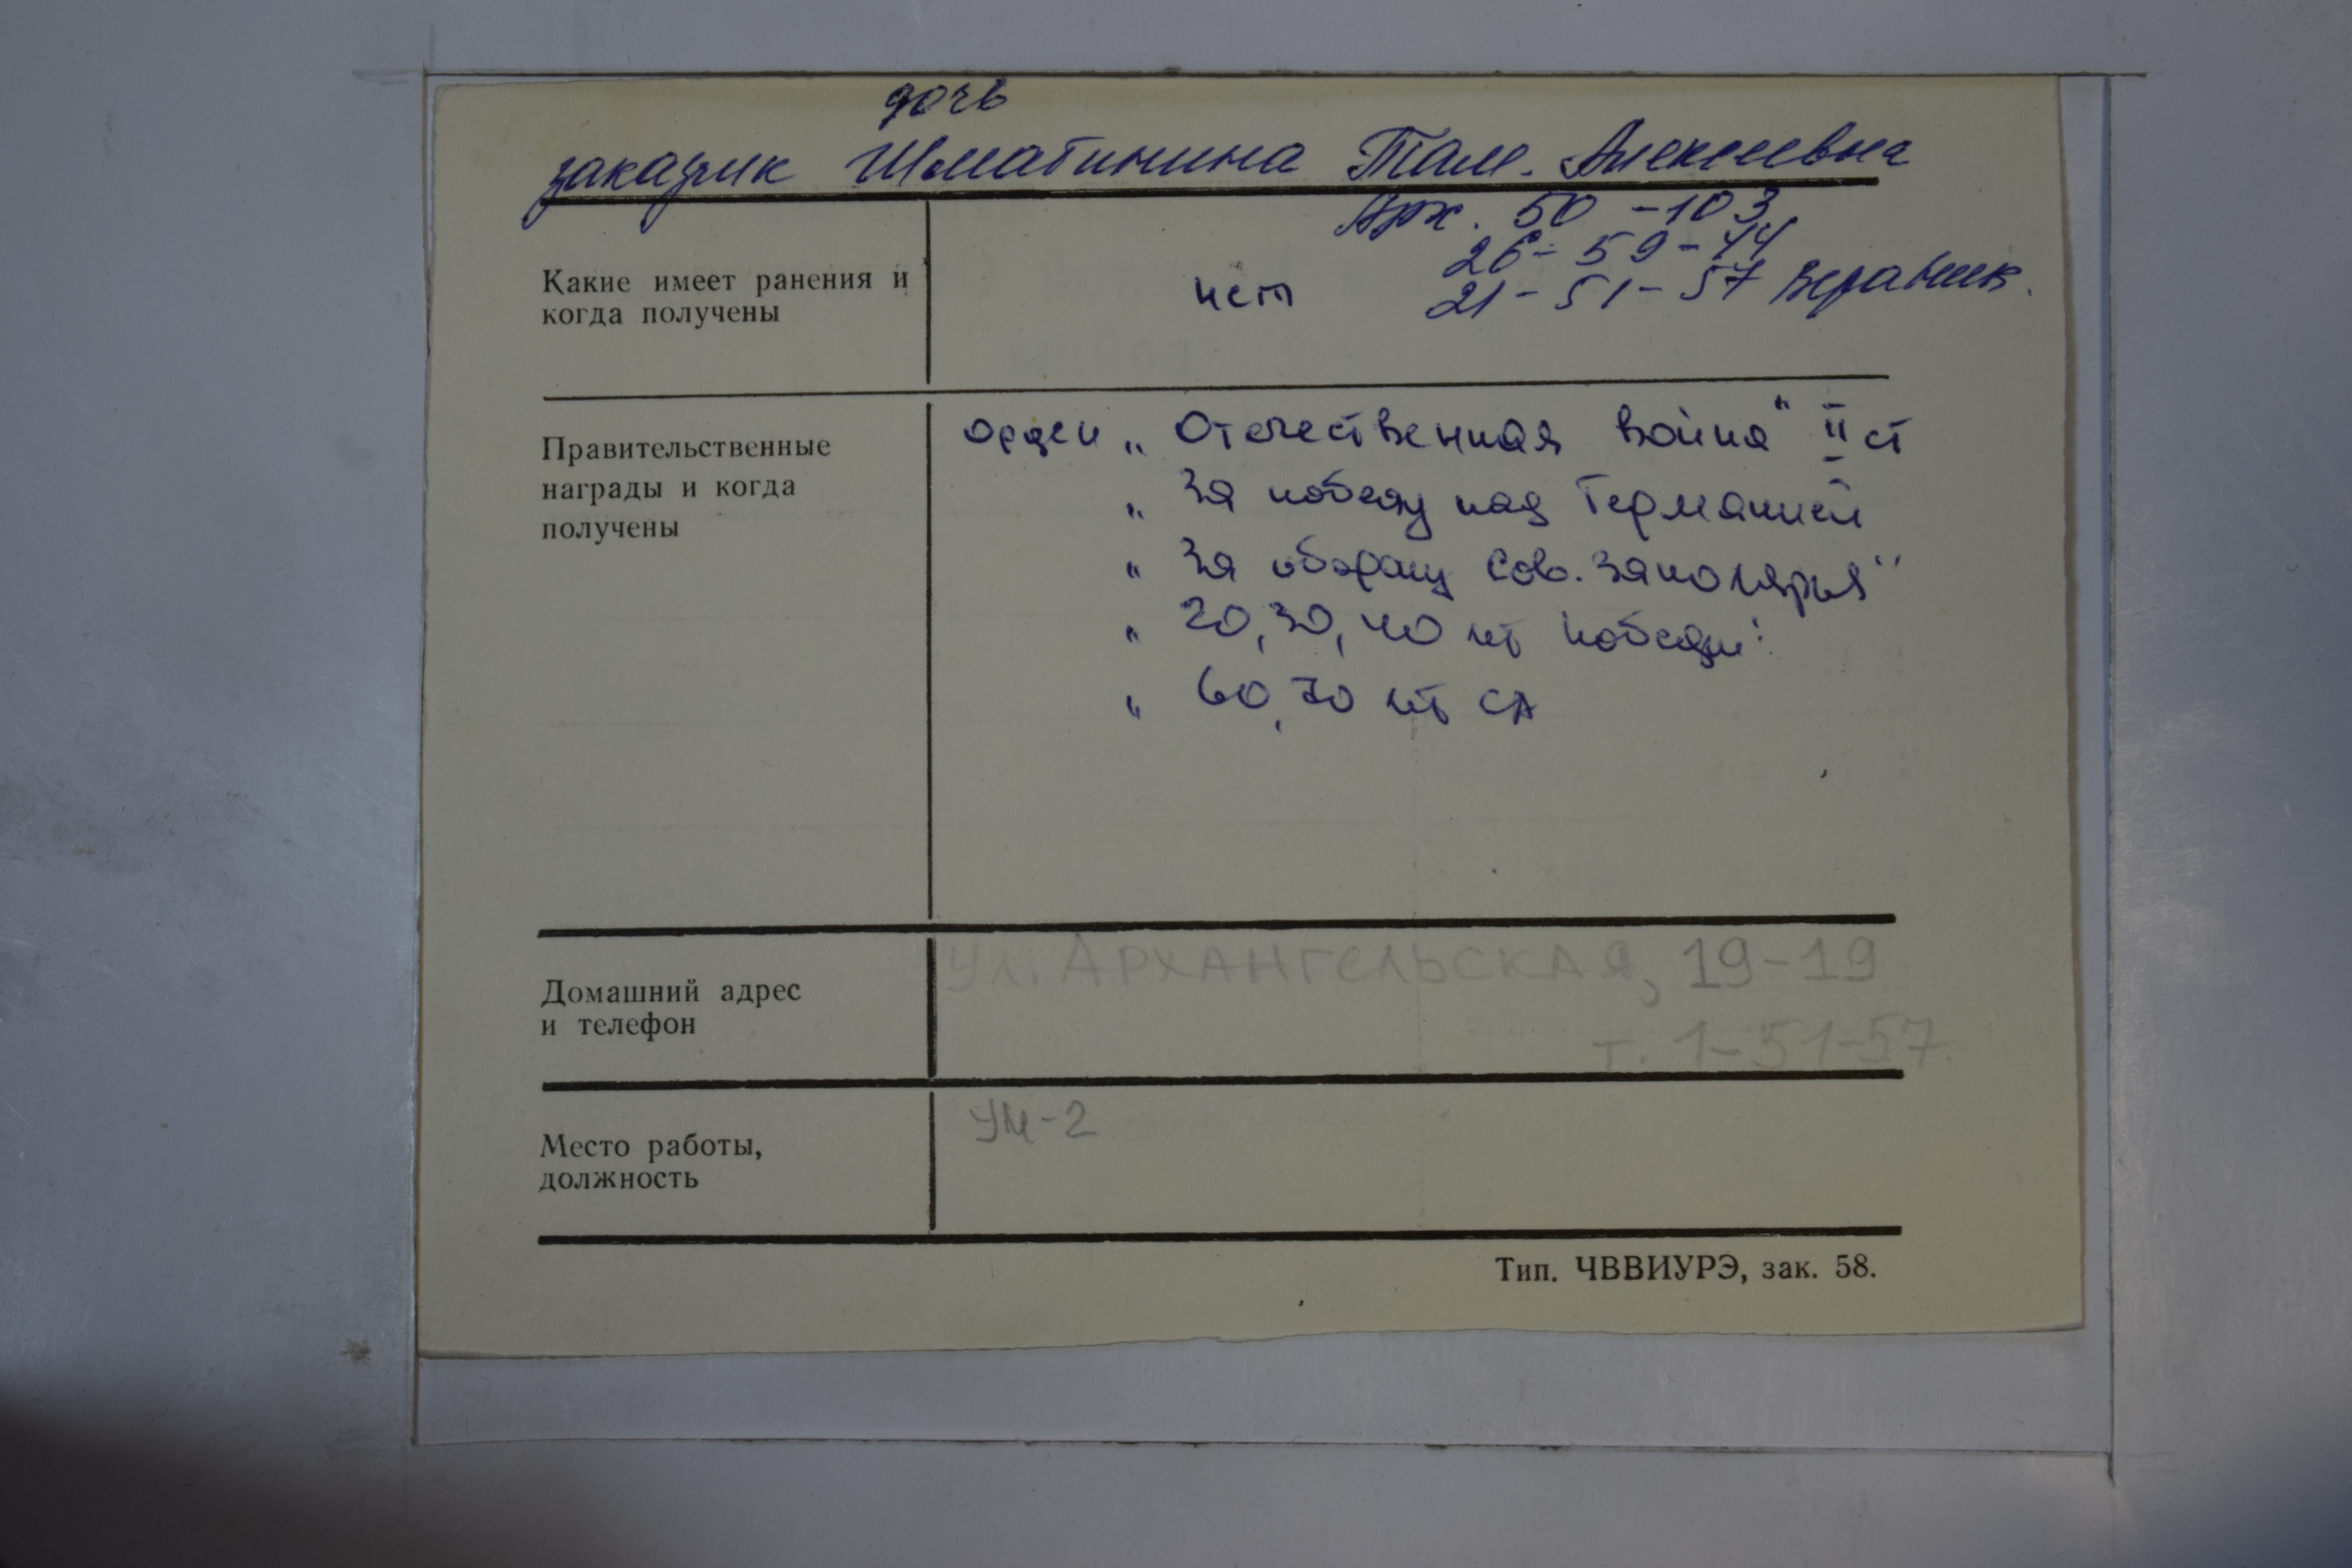 дочь
заказчик Шматинина Там. Алексеевна
Арх. 50-103
26-59-44
21-51-57
Какие имеет ранения и
когда получены
нет
Правительственные
награды и когда
получены
орден „Отечественная война" II ст
„ За победу над Германией
„ За оборону Сов. Заполярья"
„ 20, 30, 40 лет победы"
„ 60, 70 лет СА
Домашний адрес
и телефон
ул. Архангельская, 19-19
т. 1-51-57.
Место работы,
должность
УМ-2
Тип. ЧВВИУРЭ, зак. 58.